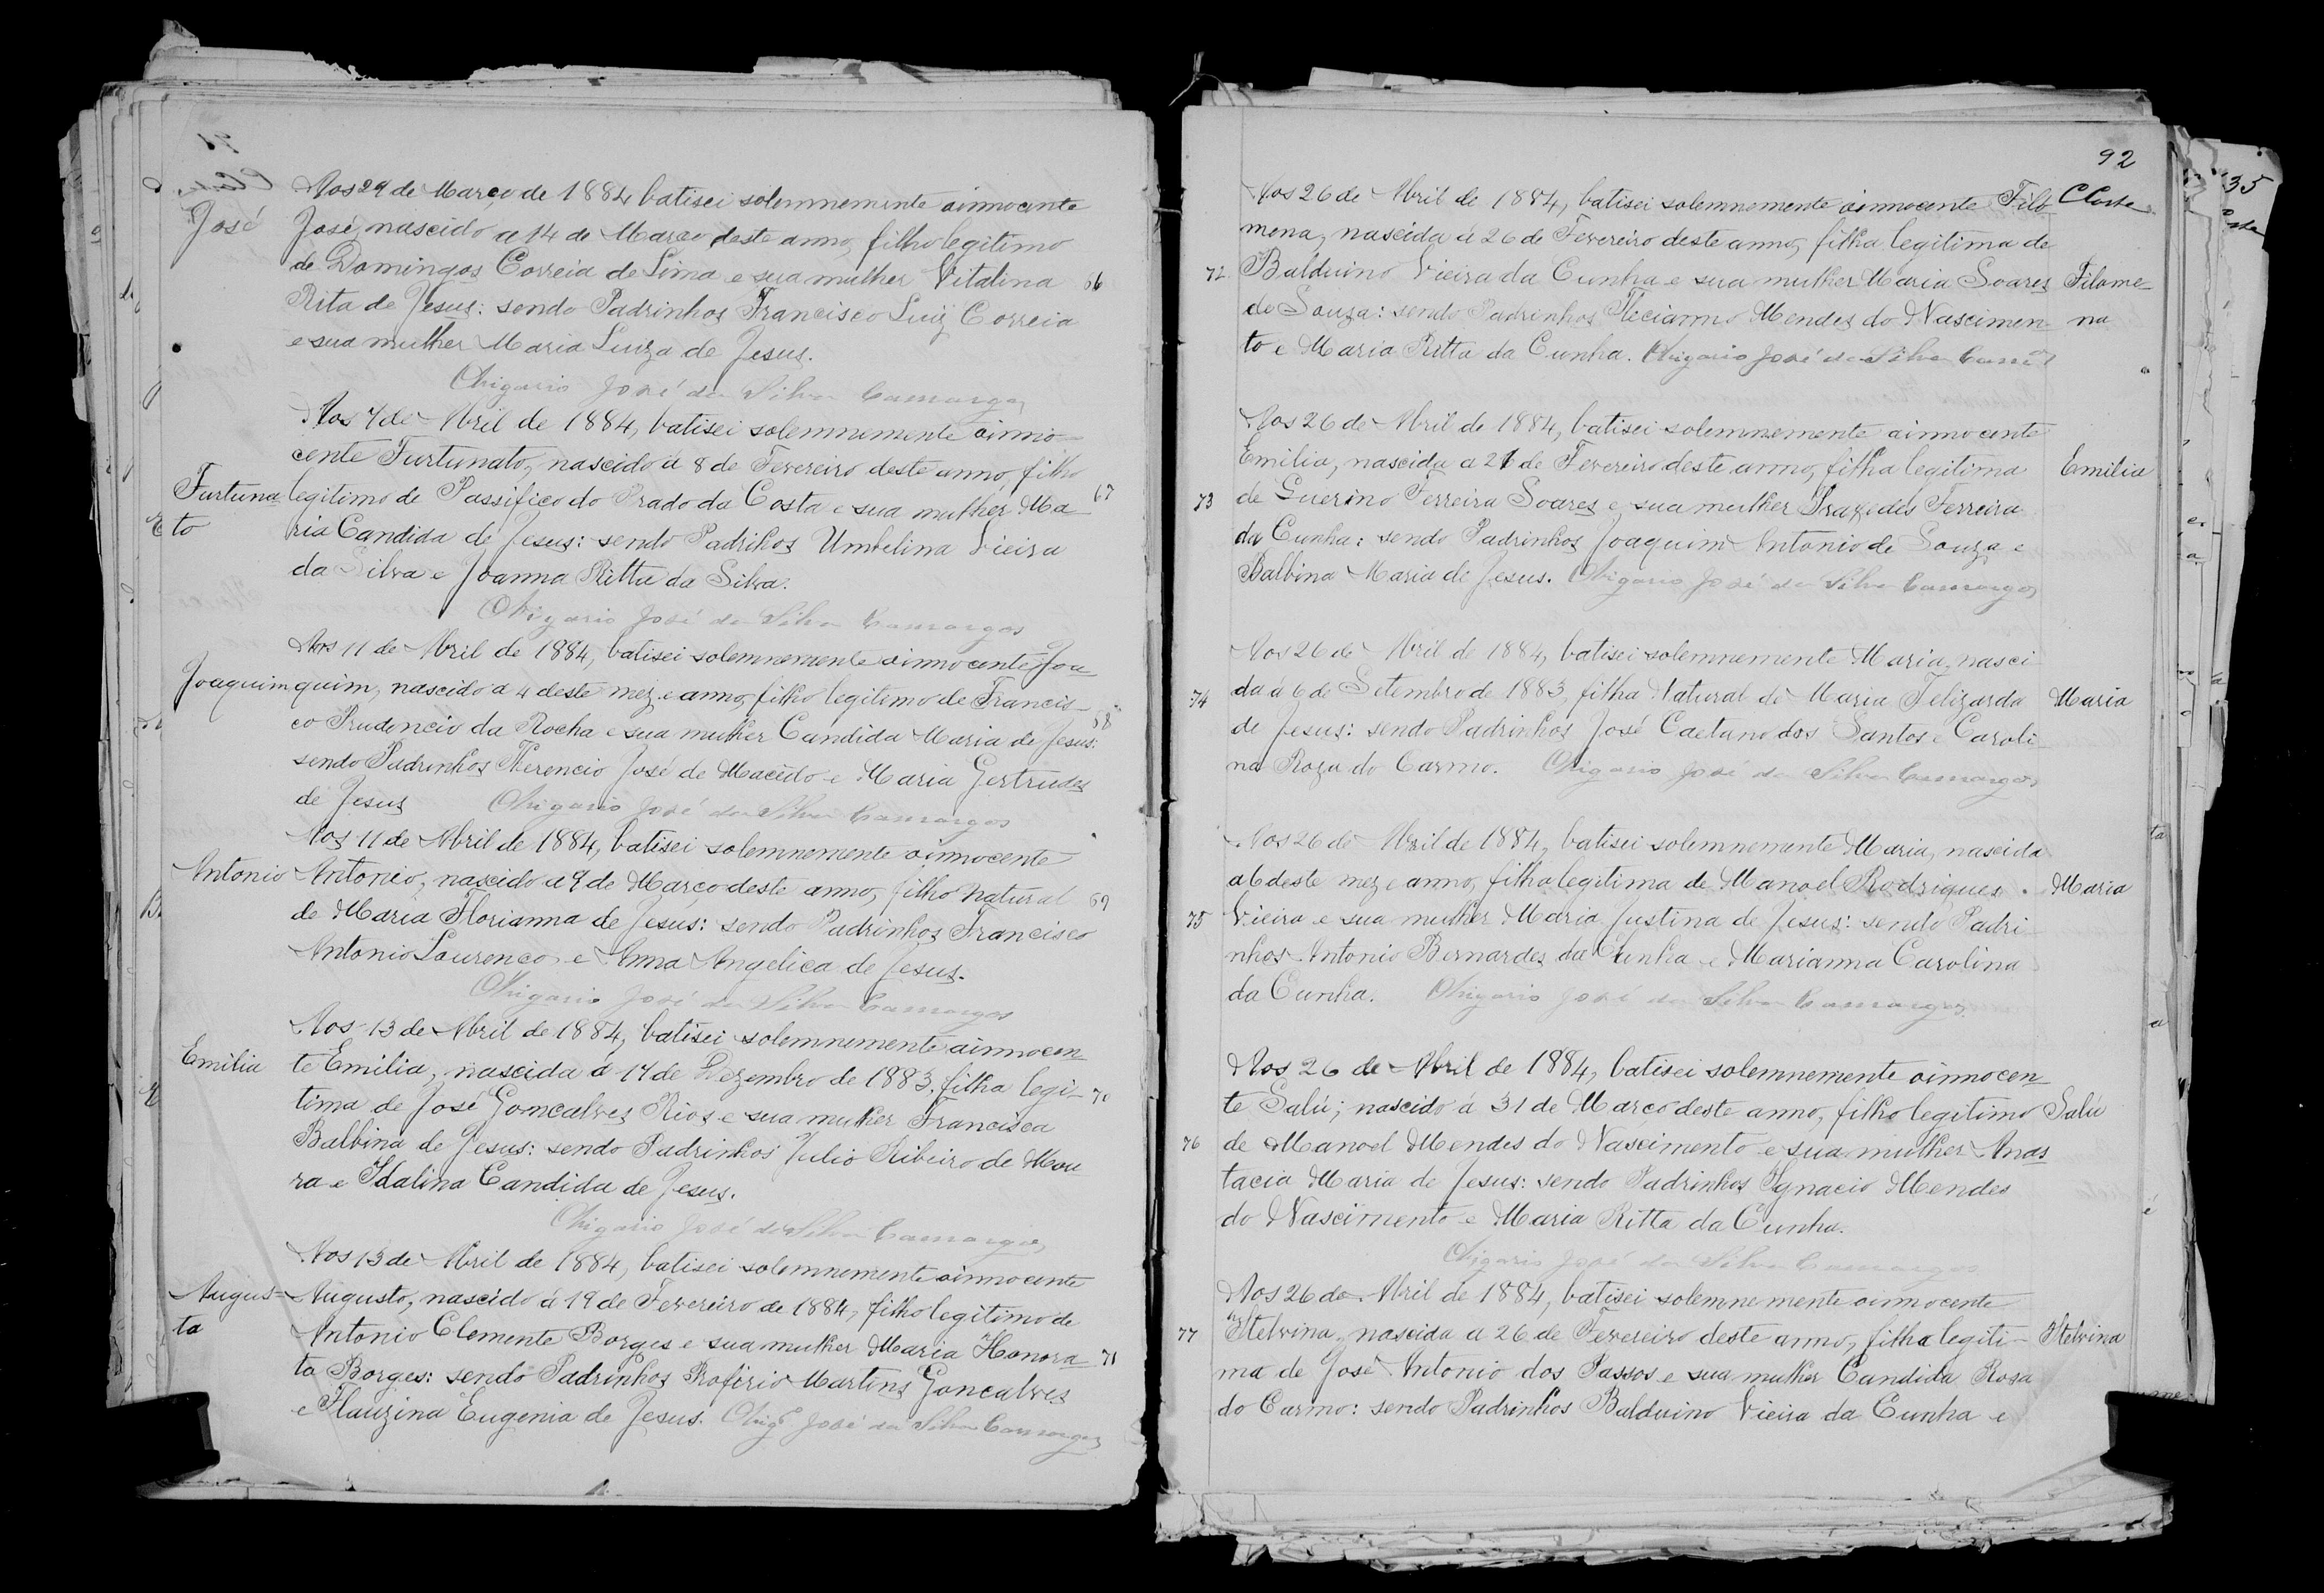 José
Aos 29 de Março de 1884 batisei solemnemente oinnocente
José, nascido a 14 de Março deste anno, filho legitimo
de Domingos Correia de Lima e sua mulher Vitalina 66
Rita de Jesus: sendo Padrinhos Francisco Luiz Correia
e sua mulher Maria Luiza de Jesus.
O Vigario José da Silva Camargos
Aos 7 de Abril de 1884, batisei solemnemente oinno-
cente Furtunato, nascido a 8 de Fevereiro deste anno, filho
Furtuna legitimo de Passifico do Prado da Costa e sua mulher Ma 67
to ria Candida de Jesus: sendo Padrihos Umbelina Vieira
da Silva e Joanna Ritta da Silva.
O Vigario José da Silva Camargos
Aos 11 de Abril de 1884, batisei solemnemente oinnocente Joa
Joaquim quim, nascido a 4 deste mez e anno, filho legitimo de Francis-
co Prudencio da Rocha e sua mulher Candida Maria de Jesus: 68
sendo Padrinhos Therencio José de Macêdo e Maria Gertrudes
de Jesus O Vigario José da Silva Camargos
Aos 11 de Abril de 1884, batisei solemnemente oinnocente
Antonio Antonio, nascido a 9 de Março deste anno, filho natural 69
de Maria Florianna de Jesus: sendo Padrinhos Francisco
Antonio Lourenco e Anna Angelica de Jesus.
O Vigario José da Silva Camargos
Aos 13 de Abril de 1884, batisei solemnemente ainnocen
Emilia te Emilia, nascida a 14 de Dezembro de 1883, filha legi- 70
tima de José Goncalves Rios e sua mulher Francisca
Balbina de Jesus: sendo Padrinhos Julio Ribeiro de Mou
ra e Idalina Candida de Jesus.
O Vigario José da Silva Camargos
Aos 13 de Abril de 1884, batisei solemnemente oinnocente
Augus- Augusto, nascido á 19 de Fevereiro de 1884, filho legitimo de
to Antonio Clemente Borges e sua mulher Maria Honora 71
ta Borges: sendo Padrinhos Proferio Martins Goncalves
e Flauzina Eugenia de Jesus. O Vigº José da Silva Camargos
92
Aos 26 de Abril de 1884, batisei solemnemente ainnocente Filo C Costa
mena, nascida á 26 de Fevereiro deste anno, filha legitima de
72 Balduino Vieira da Cunha e sua mulher Maria Soares Filome-
de Souza: sendo Padrinhos Fliciamno Mendes do Nascimen- na
to e Maria Ritta da Cunha. O Vigario José da Silva Cam.ºˢ
Aos 26 de Abril de 1884, batisei solemnemente ainnocente
Emilia, nascida a 21 de Fevereiro deste anno, filha legitima Emilia
73 de Guerino Ferreira Soares e sua mulher Praxedes Ferreira
da Cunha: sendo Padrinhos Joaquim Antonio de Souza e
Balbina Maria de Jesus. O Vigario José da Silva Camargos
Aos 26 de Abril de 1884, batisei solemnemente Maria, nasci
74 da á 6 de Setembro de 1883, filha Natural de Maria Felizarda Maria
de Jesus: sendo Padrinhos José Caetano dos Santos e Caroli-
na Roza do Carmo. O Vigario José da Silva Camargos
Aos 26 de Abril de 1884, batisei solemnemente Maria, nascida
a 6 deste mez e anno, filha legitima de Manoel Rodrigues Maria
75 Vieira e sua mulher Maria Justina de Jesus: sendo Padri-
nhos Antonio Bernardes da Cunha e Marianna Carolina
da Cunha. O Vigario José da Silva Camargos
Aos 26 de Abril de 1884, batisei solemnemente oinnocen
te Salú; nascido á 31 de Março deste anno, filho legitimo Salú
76 de Manoel Mendes do Nascimento e sua mulher Anas
tacia Maria de Jesus: sendo Padrinhos Ignacio Mendes
do Nascimento e Maria Ritta da Cunha.
O Vigario José da Silva Camargos
Aos 26 de Abril de 1884, batisei solemnemente oinnocente
77 Stelvina, nascida a 26 de Fevereiro deste anno, filha legiti- Stelvina
ma de José Antonio dos Passos e sua mulher Candida Rosa
do Carmo: sendo Padrinhos Balduino Vieira da Cunha e
35